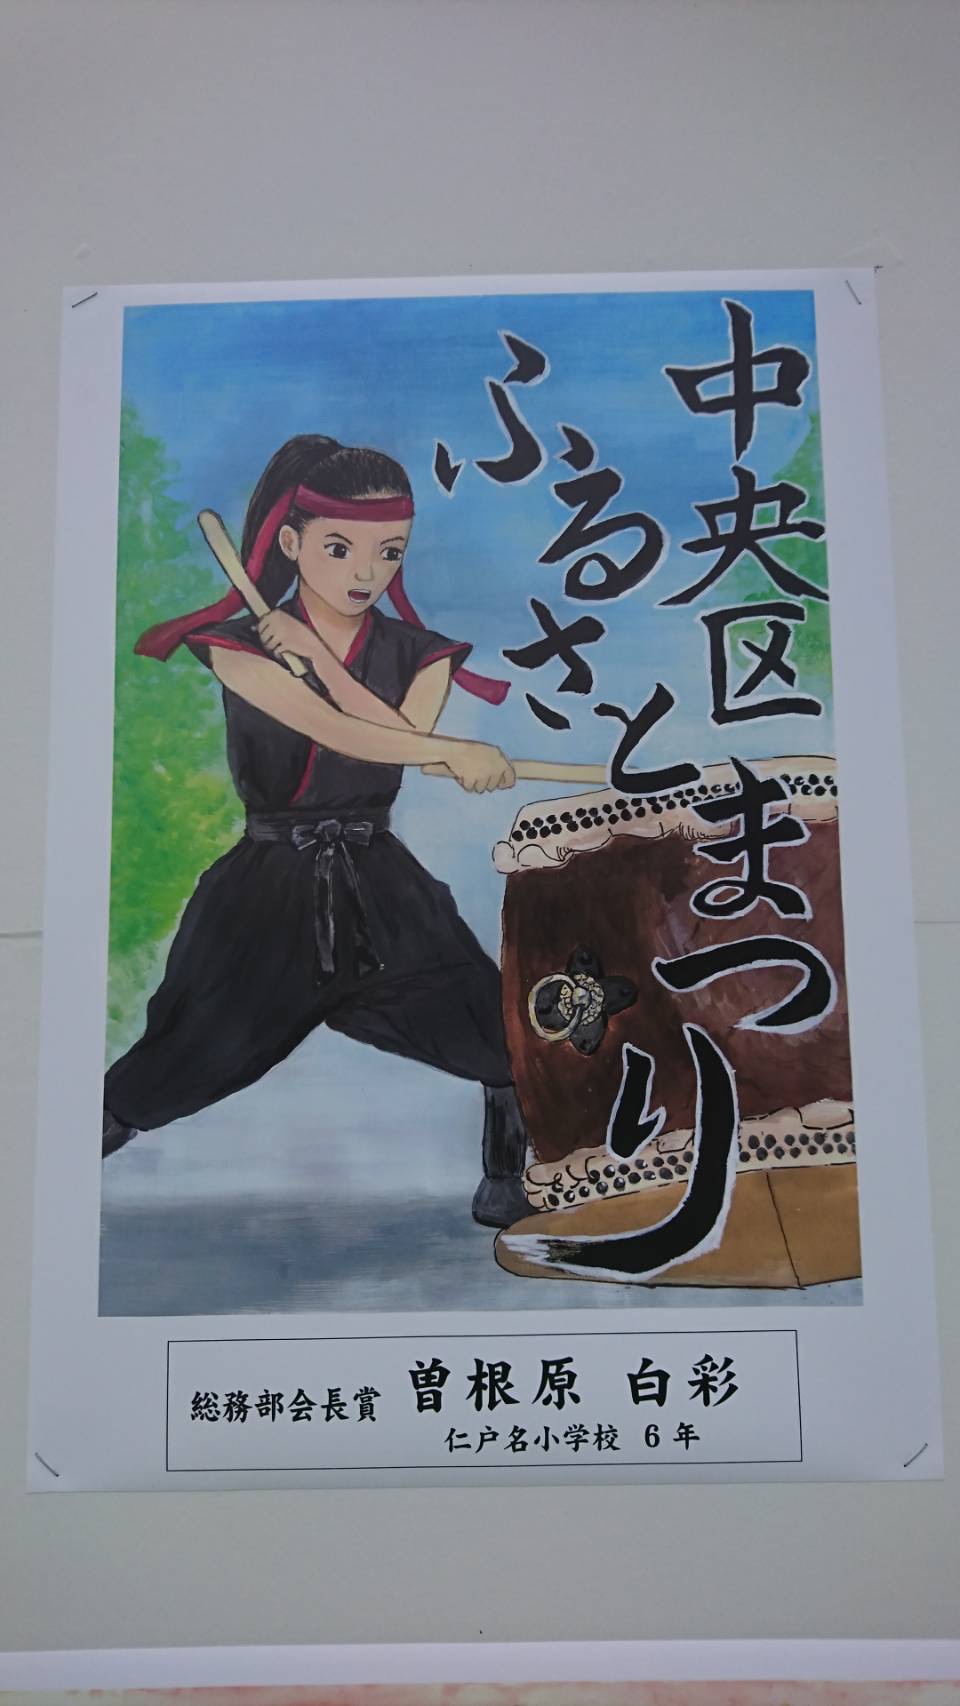 中央区
ふるさとまつり
総務部会長賞 曽根原 白彩
仁戸名小学校 6年